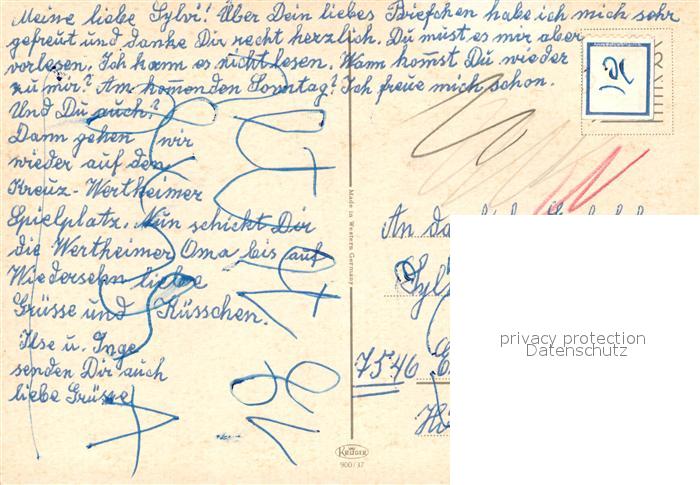 Meine liebe Sylvi! Über Dein liebes Briefchen habe ich mich sehr
gefreut und danke Dir recht herzlich. Du must es mir aber
vorlesen. Ich kann es nicht lesen. Wann kom̄st Du wieder
zu mir? Am kom̄enden Sonntag? Ich freue mich schon.
Und Du auch?
Dann gehen wir
wieder auf den
Kreuz-Wertheimer
Spielplatz. Nun schickt Dir
die Wertheimer Oma bis auf
Wiedersehn liebe
Grüsse und Küsschen.
Ilse u. Inge
senden Dir auch
liebe Grüsse
Made in Western Germany
KRÜGER
900/37
An da
Sylv
7546
privacy protection
Datenschutz